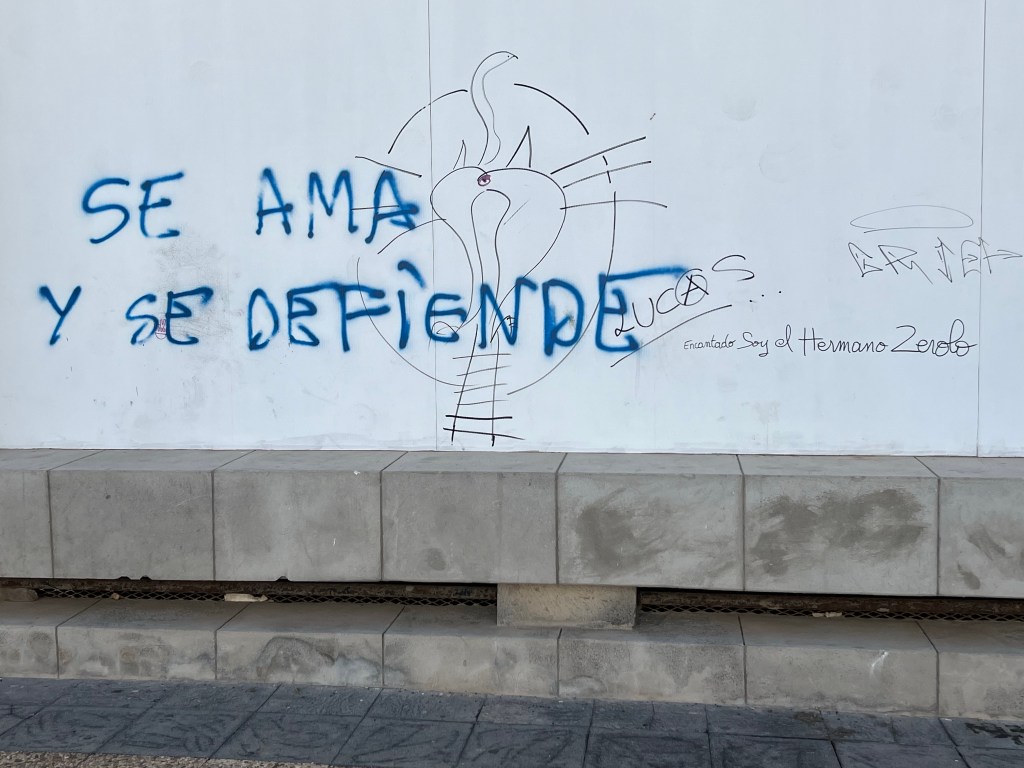 SE AMA
Y SE DEFIENDE
LUCAS...
Encantado Soy el Hermano Zerolo